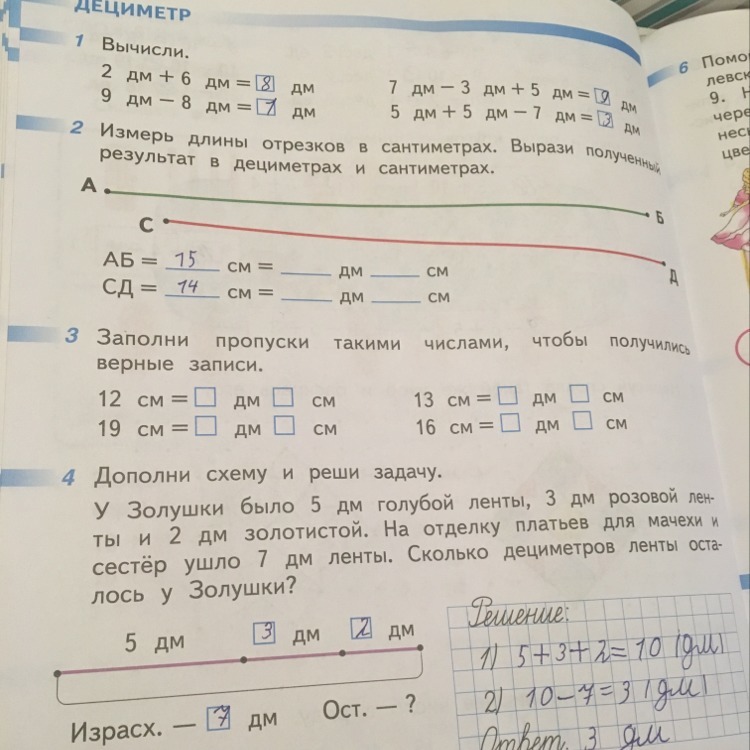 ДЕЦИМЕТР
1 Вычисли.
2 дм + 6 дм = 8 дм 7 дм − 3 дм + 5 дм = 9 дм
9 дм − 8 дм = 1 дм 5 дм + 5 дм − 7 дм = 3 дм
2 Измерь длины отрезков в сантиметрах. Вырази полученный
результат в дециметрах и сантиметрах.
А Б
С Д
АБ = 15 см = ____ дм ____ см
СД = 14 см = ____ дм ____ см
3 Заполни пропуски такими числами, чтобы получились
верные записи.
12 см = □ дм □ см 13 см = □ дм □ см
19 см = □ дм □ см 16 см = □ дм □ см
4 Дополни схему и реши задачу.
У Золушки было 5 дм голубой ленты, 3 дм розовой лен-
ты и 2 дм золотистой. На отделку платьев для мачехи и
сестёр ушло 7 дм ленты. Сколько дециметров ленты оста-
лось у Золушки?
5 дм 3 дм 2 дм
Израсх. — 7 дм Ост. — ?
Решение:
1) 5+3+2=10 (дм)
2) 10−7=3 (дм)
Ответ. 3 дм
6 Помо
левск
9. Н
чере
несн
цве